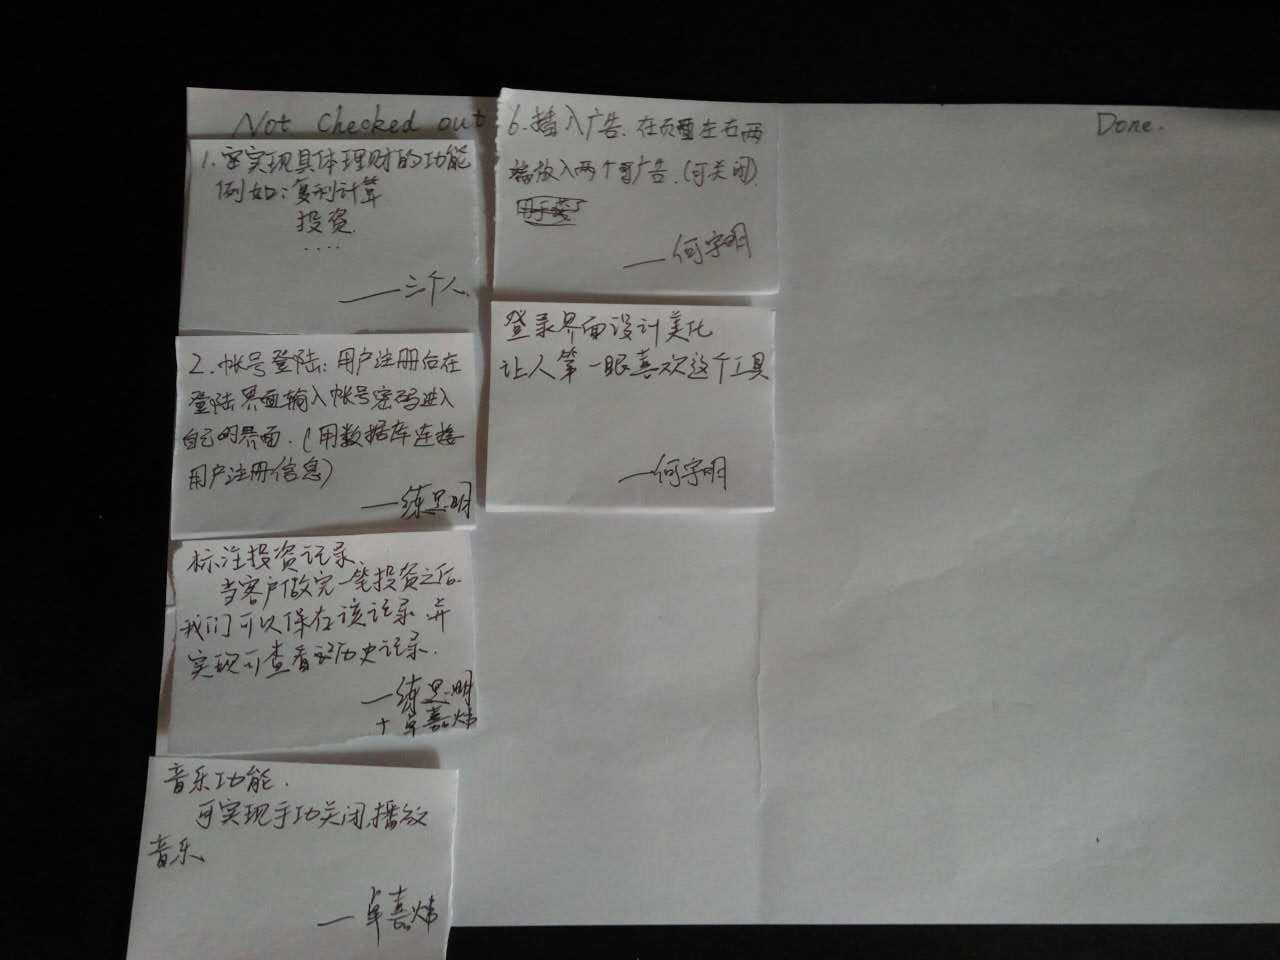 Not Checked out
1.实现具体理财的功能
例如:复利计算
投资
....
——三个人
2.帐号登陆:用户注册后在
登陆界面输入帐号密码进入
自己的界面.(用数据库连接
用户注册信息)
——练思明
标注投资记录.
当客户做完一笔投资之后.
我们可以保存该记录.并
实现可查看该历史记录.
——练思明
+卓嘉炜
音乐功能.
可实现手动关闭.播放
音乐
——卓嘉炜
6.插入广告.在页面左右两
端放入两个广告.(可关闭)
——何宇明
登录界面设计美化
让人第一眼喜欢这个工具
——何宇明
Done.